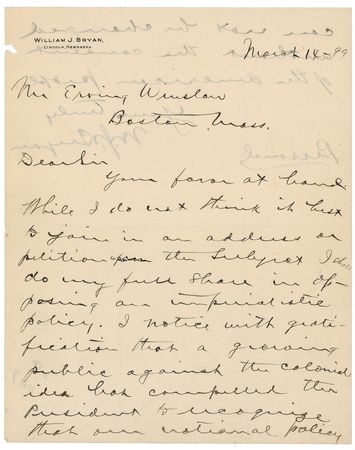 WILLIAM J. BRYAN,
LINCOLN, NEBRASKA.
March 14-99
Mr Erving Winslow
Boston Mass.
Dear Sir
Your favor at hand.
While I do not think it best
to join in an address or
petition upon the subject I shall
do my full share in op-
posing an imperialistic
policy. I notice with grati-
fication that a growing
public against the colonial
idea has compelled the
President to recognize
that our national policy